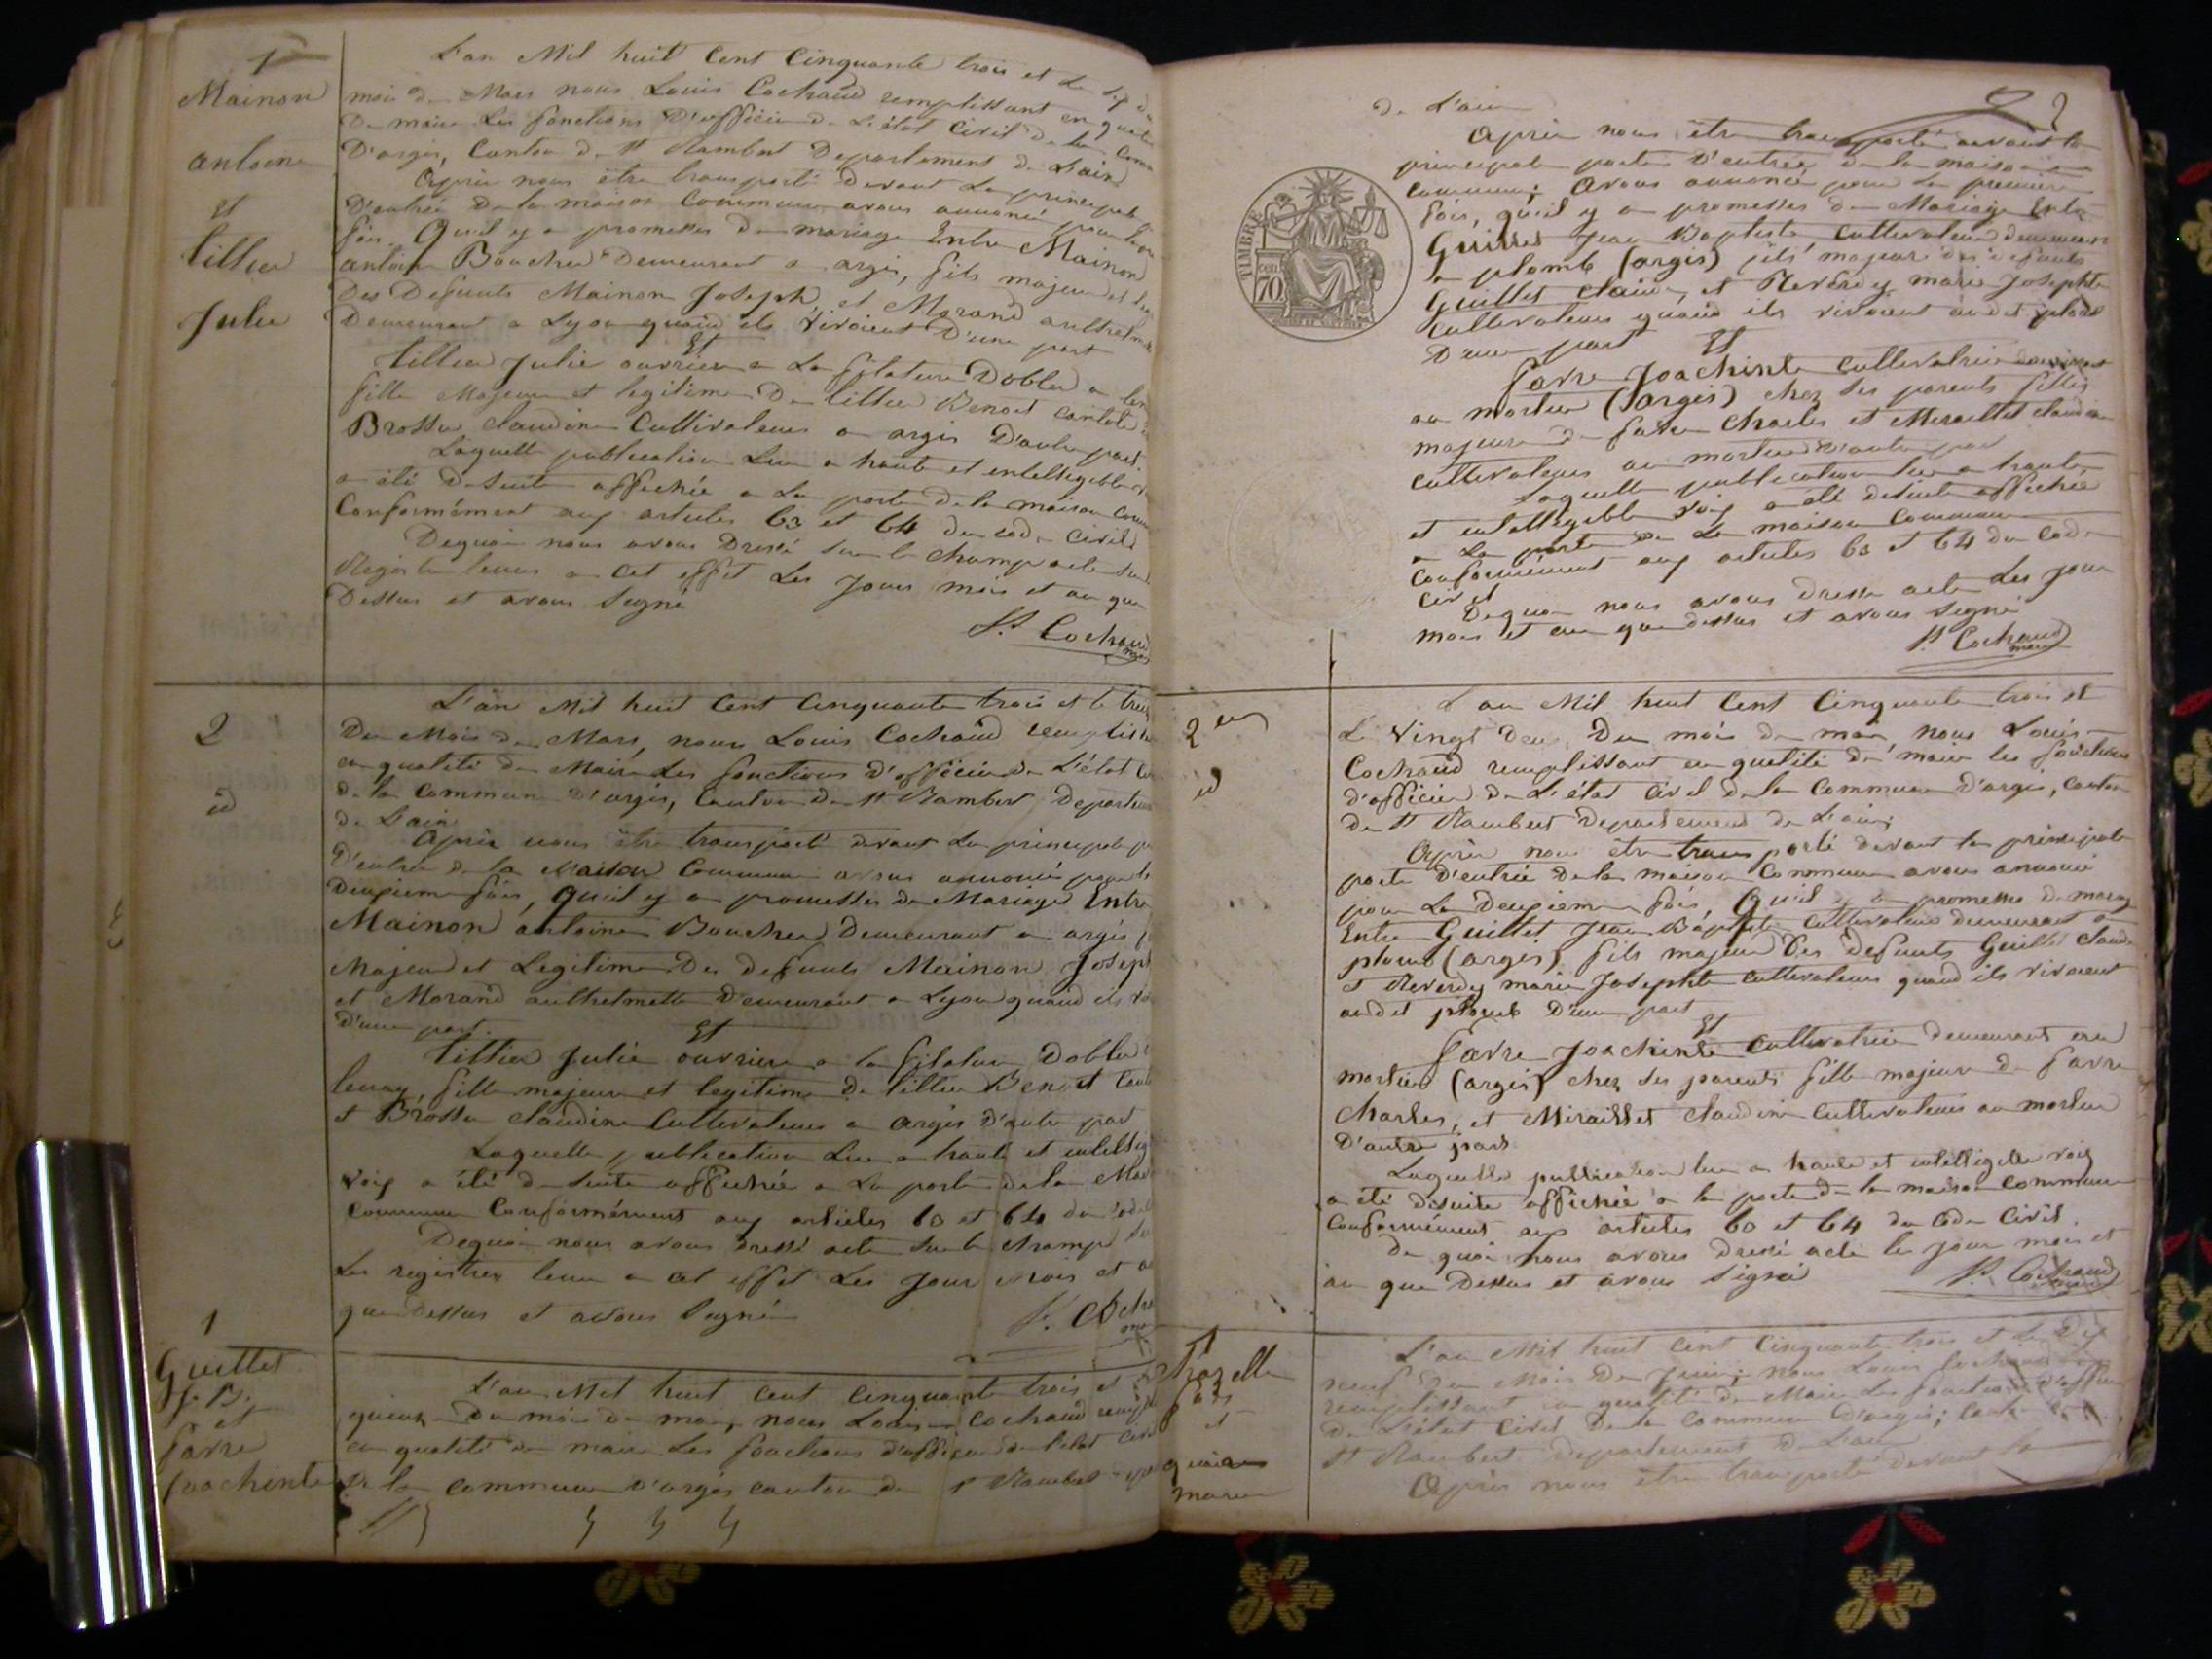 1
Mainon
antoine
et
tillier
Julie
L'an Mil huit Cent Cinquante trois et le
mois de Mars nous Louis Cochaud remplissant en
De maire Les fonctions D'officier de L'état Civil de la
D'argis, Canton de St Rambert Departement de L'ain
Après nous être transporté devant La principale
D'entrée De la maison Commune avons annoncé pour
fois. Qu'il y a promesses de mariage Entre Mainon
antoine Boucher Demeurant a argis, fils majeur et
Des Defunts Mainon Joseph, et Morand
Demeurant a Lyon quand ils Vivoient D'une part
Et
tillier Julie ouvriere a La filature Dobler a
fille Majeure et legitime De tillier Benoit
Brosse claudine Cultivateurs a argis D'autre part.
Laquelle publication Lue a haute et intelligible
a été De suite affichée a La porte De la maison
Conformément aux articles 63 et 64 du code Civil
Dequoi nous avons Dressé sur le Champ acte
Registre tenus a Cet effet Les Jours mois et an que
Dessus et avons Signé
Ls Cochaud
2
id
L'an Mil huit Cent Cinquante trois et le
Du Mois de Mars, nous Louis Cochaud
en qualité de Maire Les fonctions D'officier de L'état
de la Commune D'argis, Canton de St Rambert
de L'ain
Après nous être transporté devant La principale
D'entrée de la Maison Commune avons annoncé pour la
Deuxieme fois, Qu'il y a promesses de Mariage Entre
Mainon antoine Boucher Demeurant a argis
Majeur et Legitime Des defunts Mainon Joseph
et Morand Demeurant a Lyon quand ils
D'une part.
Et
tillier Julie ouvriere a la filature Dobler
tenay fille majeure et legitime De tillier Benoit
et Brosse claudine Cultivateurs a argis D'autre part
Laquelle publication Lue a haute et
voix a été de suite affichée a La porte de la
Commune Conformément aux articles 63 et 64 du
Dequoi nous avons dressé acte sur le champ
Les registres tenus a cet effet Les Jour mois et
que Dessus et avons Signé
1
Guillet
J. B.
et
favre
Joachinte
L'an Mil huit Cent Cinquante trois et
quinze Du mois de mai, nous Louis Cochaud
en qualité de maire Les fonctions d'officier de l'état
De la commune D'argis canton de St Rambert
2
de L'ain
Après nous être transporté devant la
principale porte D'entrée de la maison
commune; avons annoncé pour la premiere
fois, qu'il y a promesses de Mariage Entre
Guillet Jean Baptiste Cultivateur demeurant
a plomb (argis) fils majeur des defunts
Guillet claude, et Reverdy marie Josephte
cultivateurs quand ils vivoient audit
D'une part
Et
favre Joachinte Cultivatrice
au mortier (argis) chez ses parents fille
majeure de favre Charles et Miraillet claudine
cultivateurs au mortier D'autre part
Laquelle publication lue a haute
et intelligible voix a été desuite affichée
a La porte de La maison Commune
Conformément aux articles 63 et 64 du Code
civil
Dequoi nous avons dressé acte Les Jour
mois et an que dessus et avons Signé
Ls Cochaud
maire
TIMBRE
70
2
id
L'an Mil huit Cent Cinquante trois et
Le Vingt Deux Du mois de mai, nous Louis
Cochaud remplissant en qualité de maire les fonctions
d'officier de L'état Civil de la Commune D'argis, canton
de St Rambert Departement de L'ain;
Après nous être transporté devant la principale
porte D'entrée de la maison Commune avons annoncé
pour La Deuxieme fois, Qu'il y a promesses de
Entre Guillet Jean Baptiste Cultivateur demeurant a
plomb (argis), fils majeur Des defunts Guillet claude
et Reverdy marie Josephte cultivateurs quand ils vivoient
audit plomb D'une part
Et
favre Joachinte Cultivatrice demeurant au
mortier (argis) chez ses parents fille majeure de favre
Charles, et Miraillet claudine Cultivateurs au mortier
D'autre part
Laquelle publication lue a haute et intelligible voix
a été desuite affichée a la porte de la maison Commune
Conformément aux articles 63 et 64 du Code Civil.
De quoi nous avons Dressé acte les jour mois et
an que Dessus et avons Signé
Ls Cochaud
1
et
marie
L'an Mil huit Cent Cinquante trois et Le Dix
neuf Du Mois De Juin; nous Louis Cochaud
remplissant en qualité de Maire Les fonctions d'officier
De L'état Civil De la Commune D'argis; Canton
St Rambert Departement De L'ain
Après nous être transporté devant la